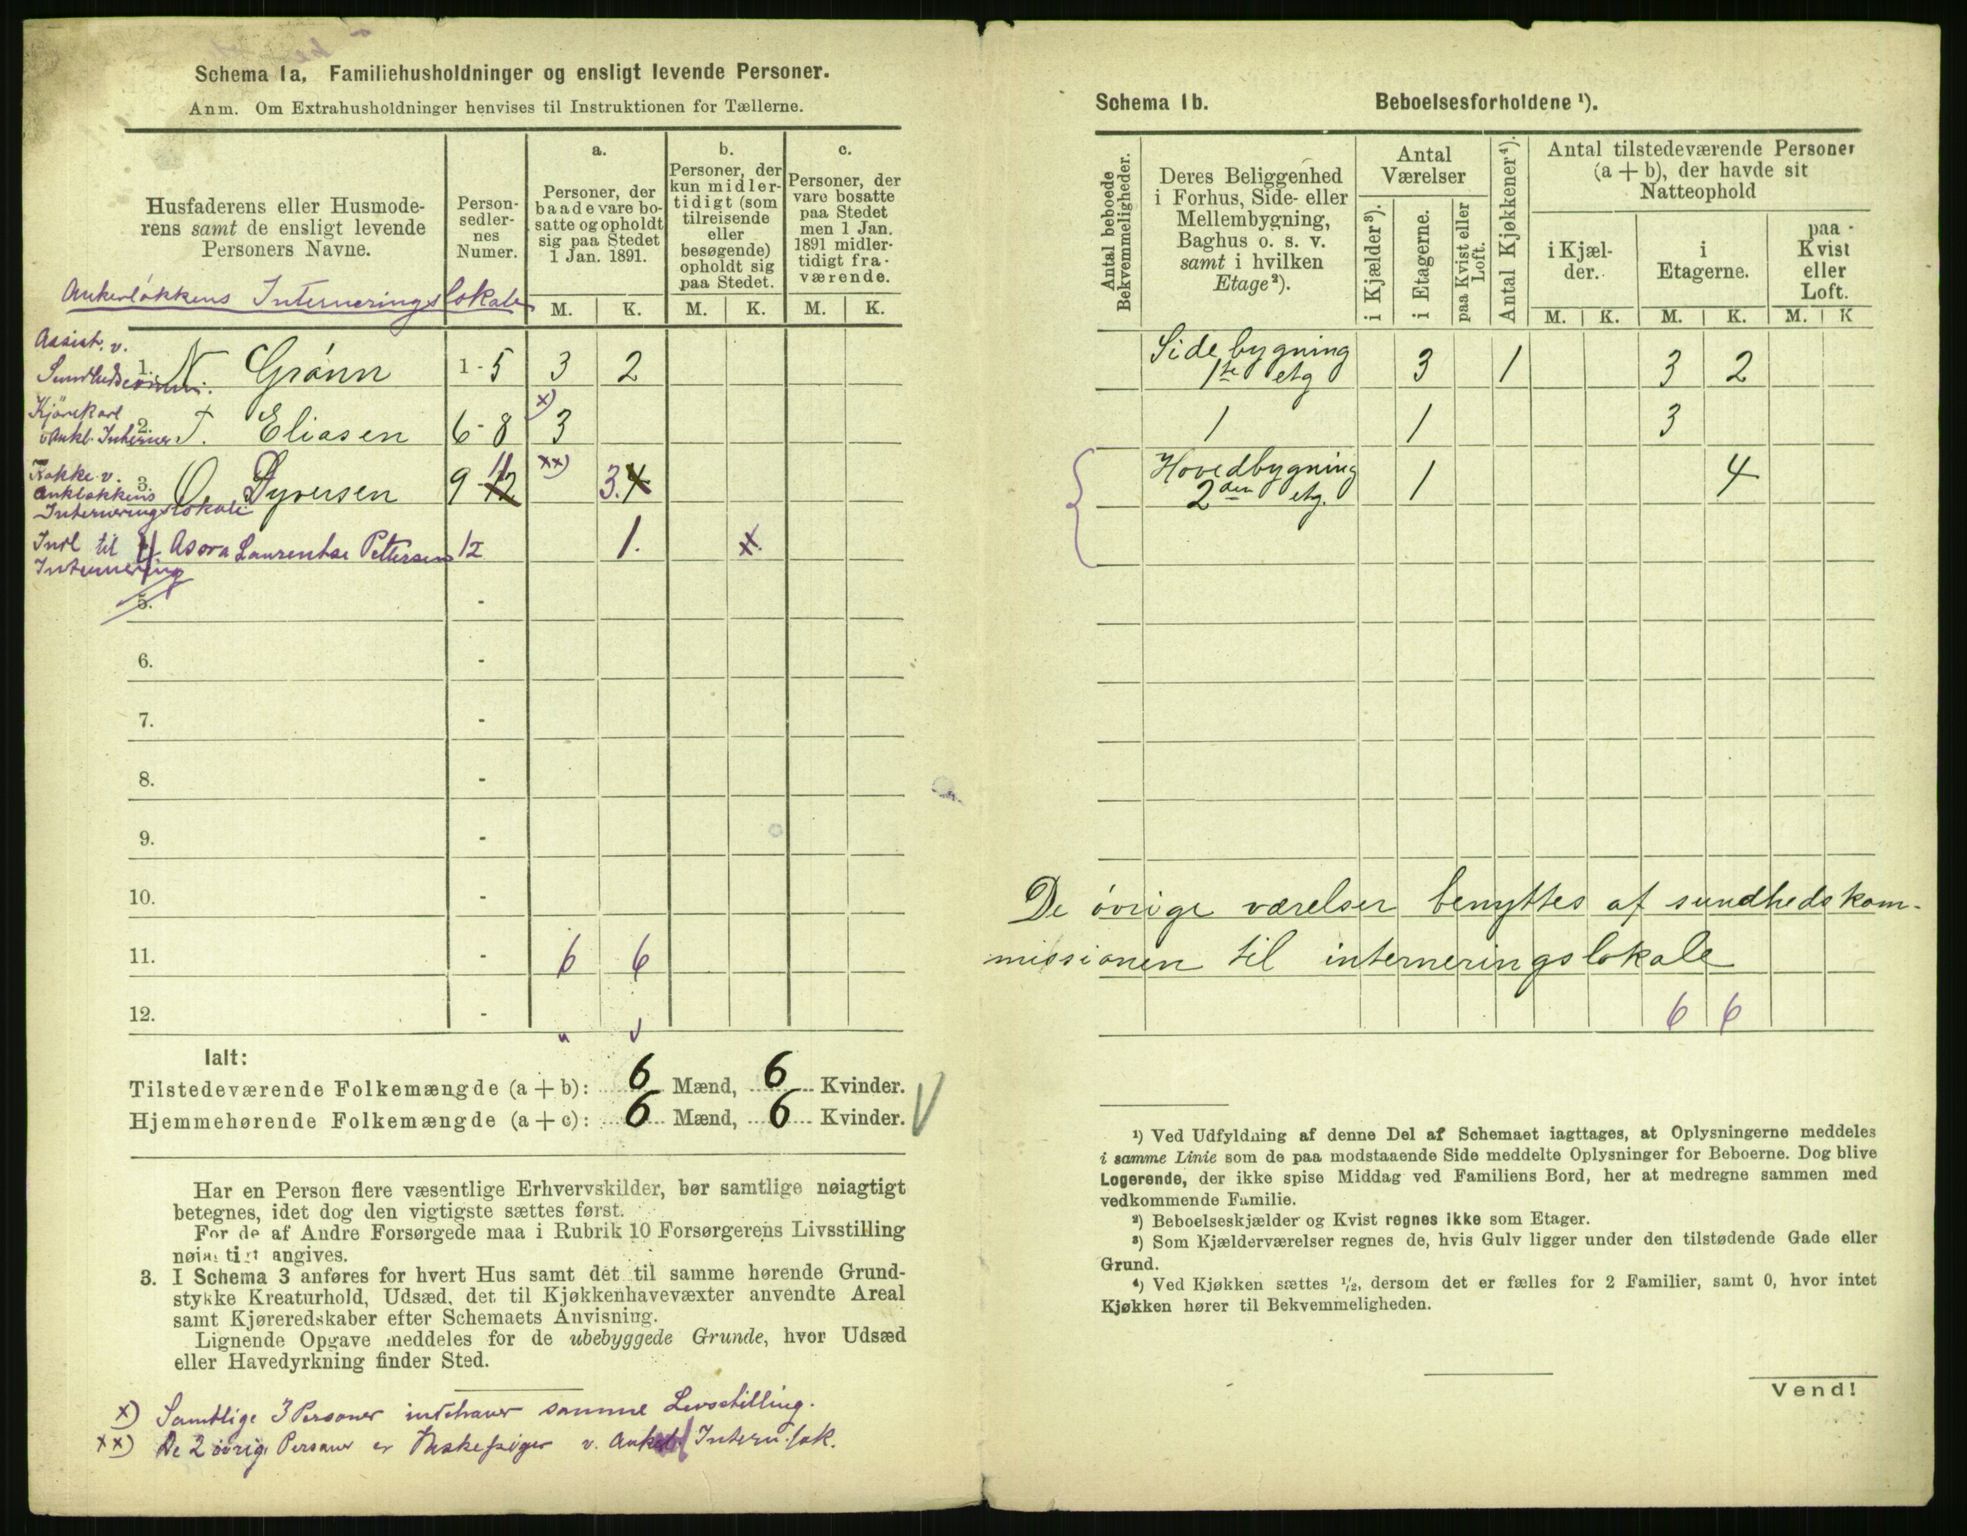 Schema 1a, Familiehusholdninger og ensligt levende Personer.
Anm. Om Extrahusholdninger henvises til Instruktionen for Tællerne.
Husfaderens eller Husmode-
rens samt de ensligt levende
Personers Navne.
Person-
sedler-
nes
Numer.
a.
Personer, der
baade vare bo-
satte og opholdt
sig paa Stedet
1 Jan. 1891.
b.
Personer, der
kun midler-
tidigt (som
tilreisende
eller
besøgende)
opholdt sig
paa Stedet.
c.
Personer, der
vare bosatte
paa Stedet
men 1 Jan.
1891 midler-
tidigt fra-
værende.
M. K. M. K. M. K.
Ankerløkkens Interneringslokale
Assist. v.
Sundhedscomm.
1. N Grønn 1-5 3 2
Kjørekarl
v Ankl. Interner
2. T. Eliasen 6-8 x) 3
Kokke v.
Ankløkkens
Interneringslokale
3. O. Dyversen 9-12 11 xx) 3. 4
Indl til
Internering
4 Asora Laurentse Pettersen 12 1. 1.
5. -
6. -
7. -
8. -
9. -
10. -
11. - 6 6
12. -
Ialt:
Tilstedeværende Folkemængde (a + b): 6 Mænd, 6 Kvinder.
Hjemmehørende Folkemængde (a + c): 6 Mænd, 6 Kvinder.
Har en Person flere væsentlige Erhvervskilder, bør samtlige nøiagtigt
betegnes, idet dog den vigtigste sættes først.
For de af Andre Forsørgede maa i Rubrik 10 Forsørgerens Livsstilling
nøiagtigt angives.
3. I Schema 3 anføres for hvert Hus samt det til samme hørende Grund-
stykke Kreaturhold, Udsæd, det til Kjøkkenhavevæxter anvendte Areal
samt Kjøreredskaber efter Schemaets Anvisning.
Lignende Opgave meddeles for de ubebyggede Grunde, hvor Udsæd
eller Havedyrkning finder Sted.
x) Samtlige 3 Personer indehaver samme Livsstilling.
xx) De 2 øvrige Personer er Vaskepiger v. Ankerl Intern. lok.
Schema 1b. Beboelsesforholdene ¹).
Antal beboede
Bekvemmeligheder.
Deres Beliggenhed
i Forhus, Side- eller
Mellembygning,
Baghus o. s. v.
samt i hvilken
Etage²).
Antal
Værelser
i Kjælder³).
i Etagerne.
paa Kvist eller
Loft.
Antal Kjøkkener⁴).
Antal tilstedeværende Personer
(a + b), der havde sit
Natteophold
i Kjæl-
der.
i
Etagerne.
paa
Kvist
eller
Loft.
M. K. M. K. M. K
Sidebygning
1ste etg 3 1 3 2
1 1 3
Hovedbygning
2den etg. 1 4
De øvrige værelser benyttes af sundhedskom-
missionen til interneringslokale
6 6
¹) Ved Udfyldning af denne Del af Schemaet iagttages, at Oplysningerne meddeles
i samme Linie som de paa modstaaende Side meddelte Oplysninger for Beboerne. Dog blive
Logerende, der ikke spise Middag ved Familiens Bord, her at medregne sammen med
vedkommende Familie.
²) Beboelseskjælder og Kvist regnes ikke som Etager.
³) Som Kjælderværelser regnes de, hvis Gulv ligger under den tilstødende Gade eller
Grund.
⁴) Ved Kjøkken sættes ½, dersom det er fælles for 2 Familier, samt 0, hvor intet
Kjøkken hører til Bekvemmeligheden.
Vend!